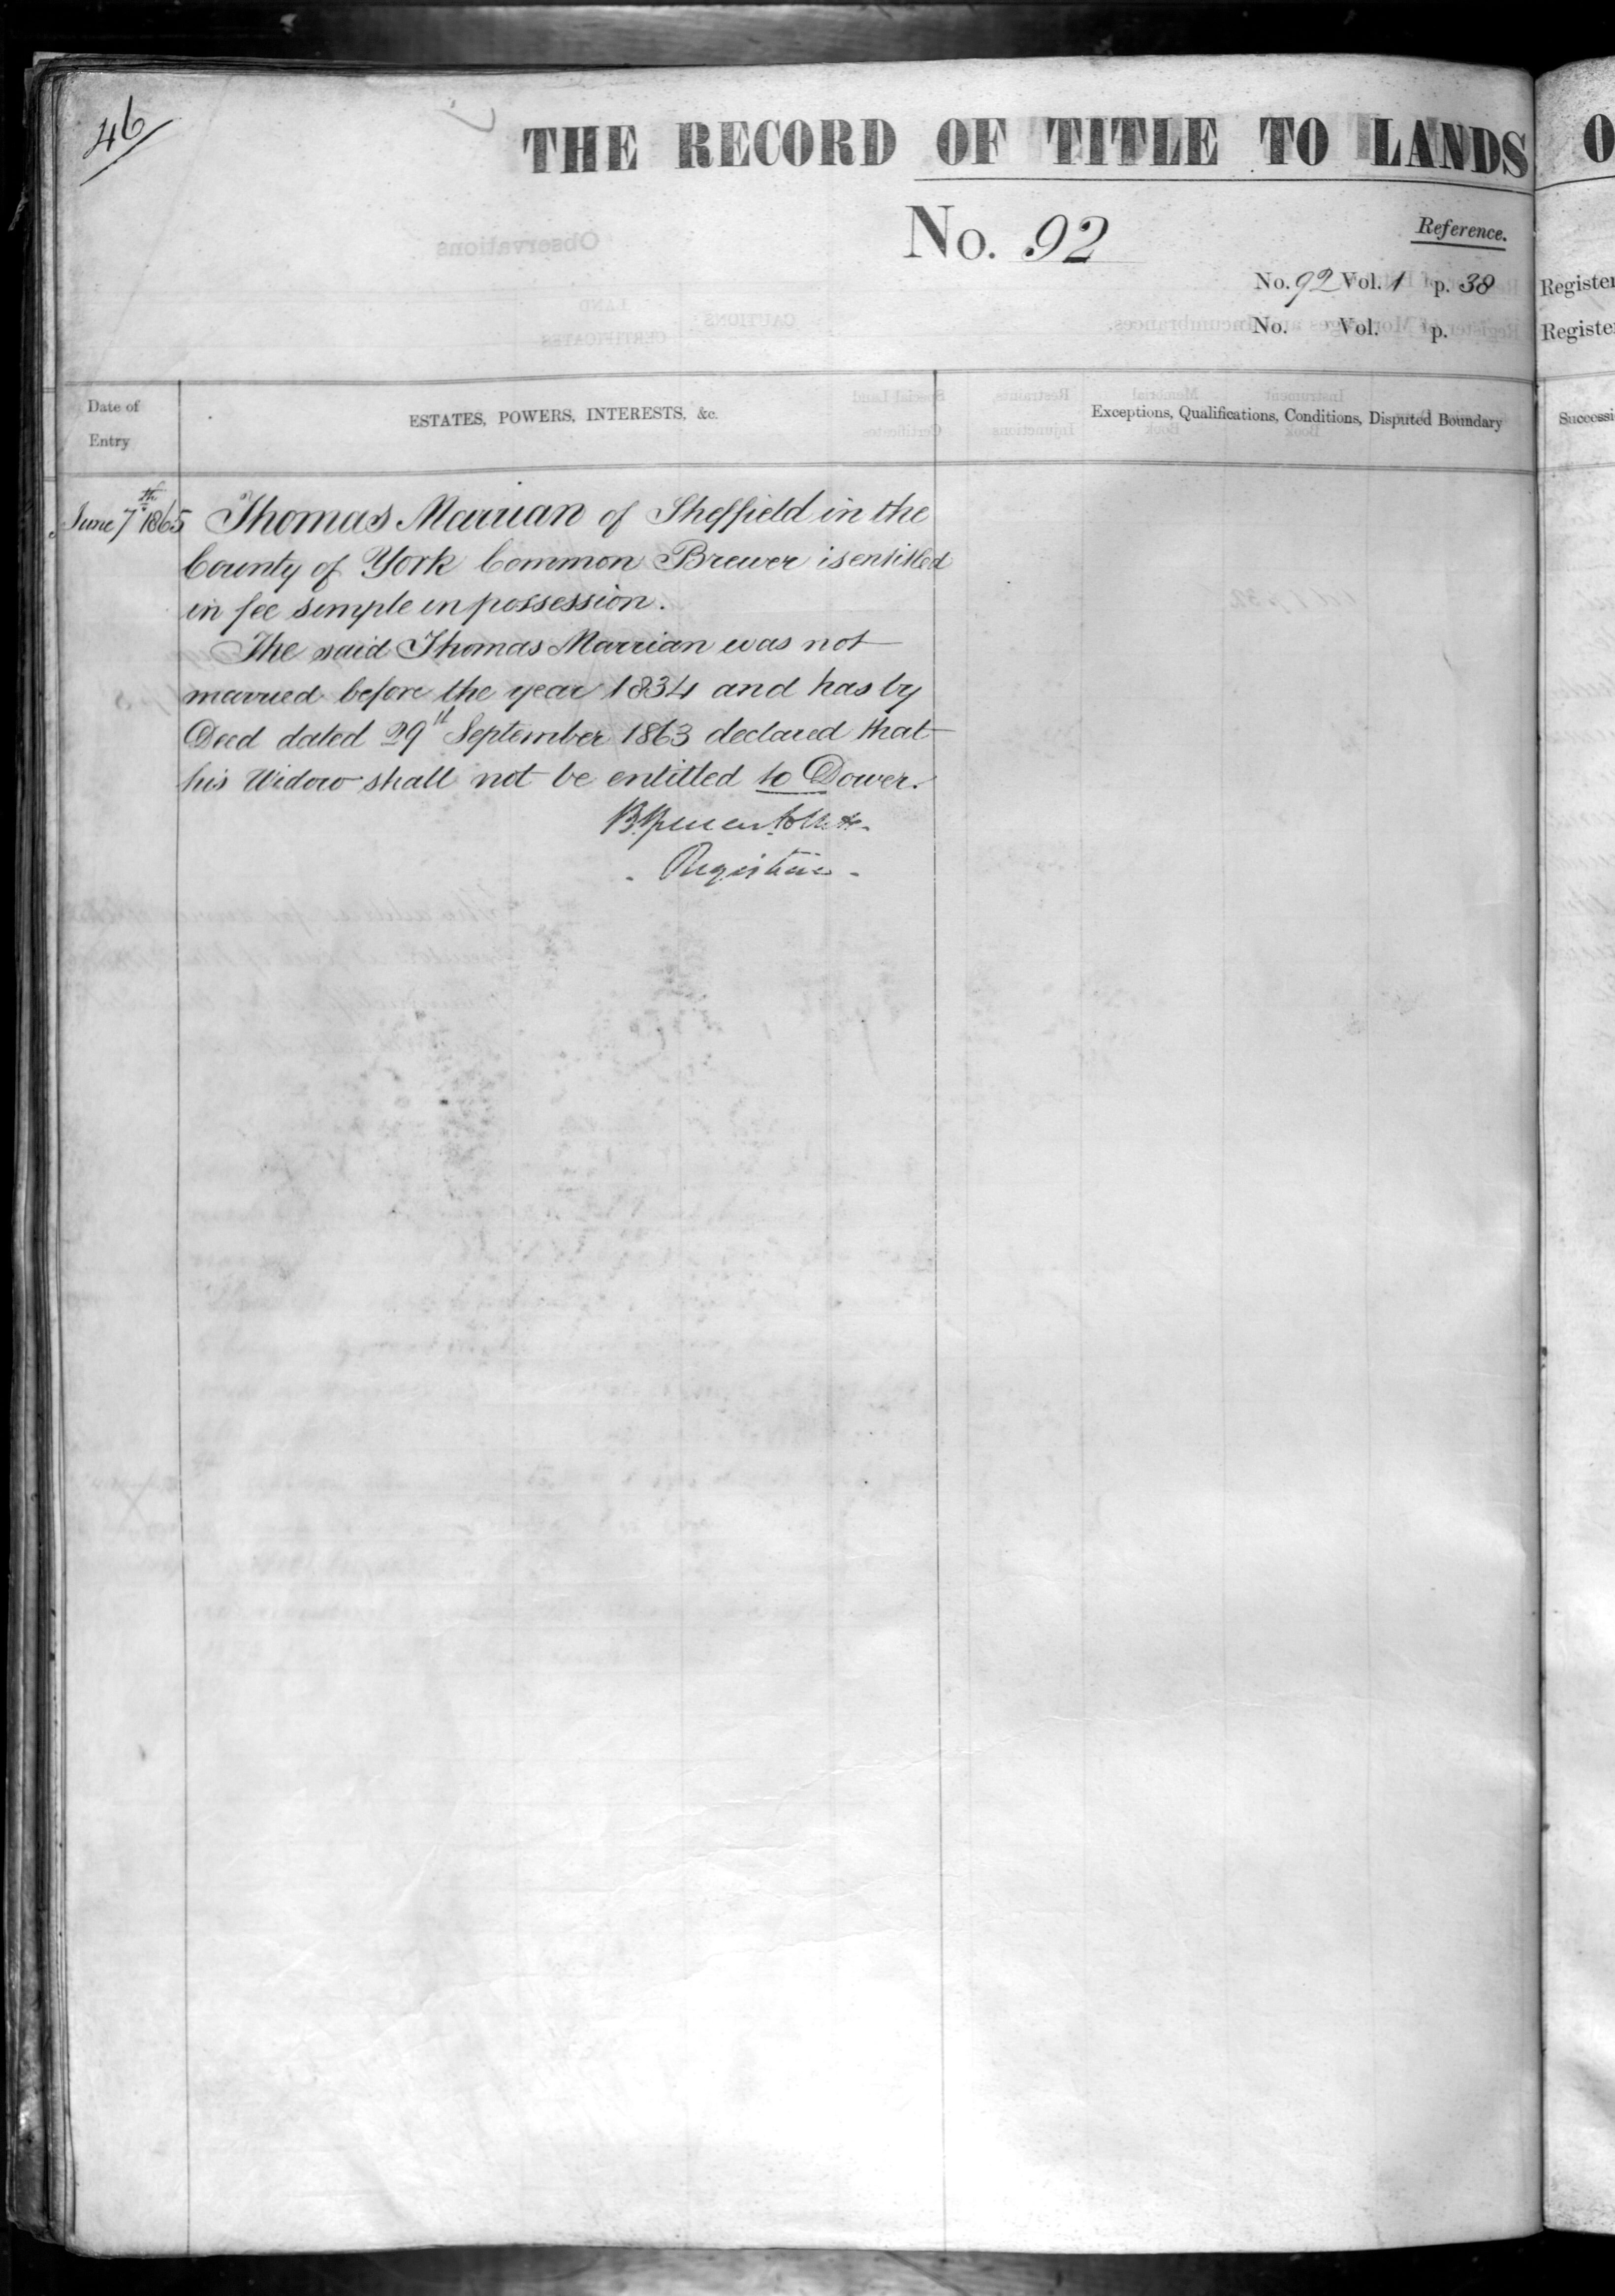 46
THE RECORD OF TITLE TO LANDS
No. 92
Reference.
No. 92 Vol. 1 p. 38
No. Vol. p.
Date of Entry
ESTATES, POWERS, INTERESTS, &c.
Exceptions, Qualifications, Conditions, Disputed Boundary
June 7th 1865
Thomas Marrian of Sheffield in the
County of York Common Brewer is entitled
in fee simple in possession.
The said Thomas Marrian was not
married before the year 1834 and has by
Deed dated 29th September 1863 declared that
his Widow shall not be entitled to Dower.
Registrar
O
Register
Register
Successi